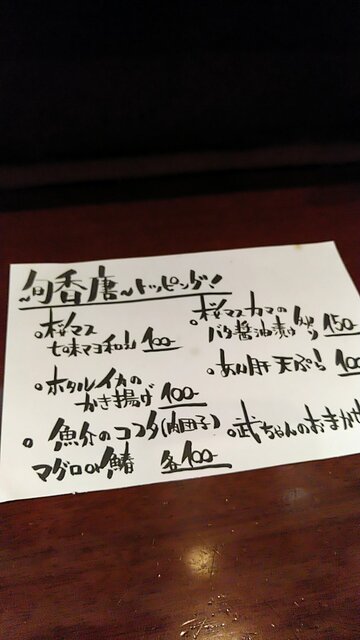 旬香唐〜トッピング!
・桜マス
七味マヨ和え 100-
・ホタルイカの
かき揚げ 100-
・魚介のコフタ(肉団子)
マグロor鰆 各100-
・桜マスカマの
バタ醤油漬け 150-
・あん肝天ぷら 100
・武ちゃんのおまかせ